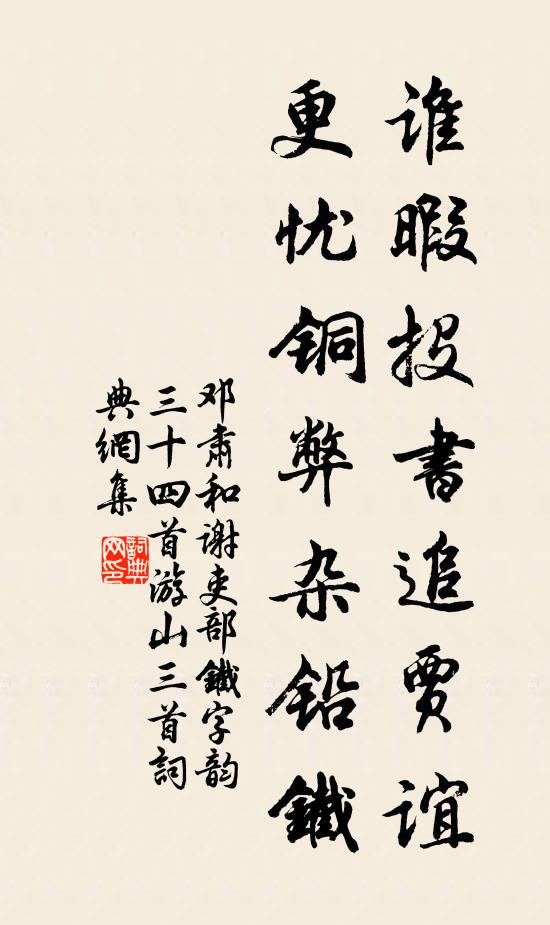 谁暇投书追贾谊
更忧铜弊杂铅鐵
邓肃和谢吏部鐵字韵
三十四首游山三首詞
典網集
詞典
网印